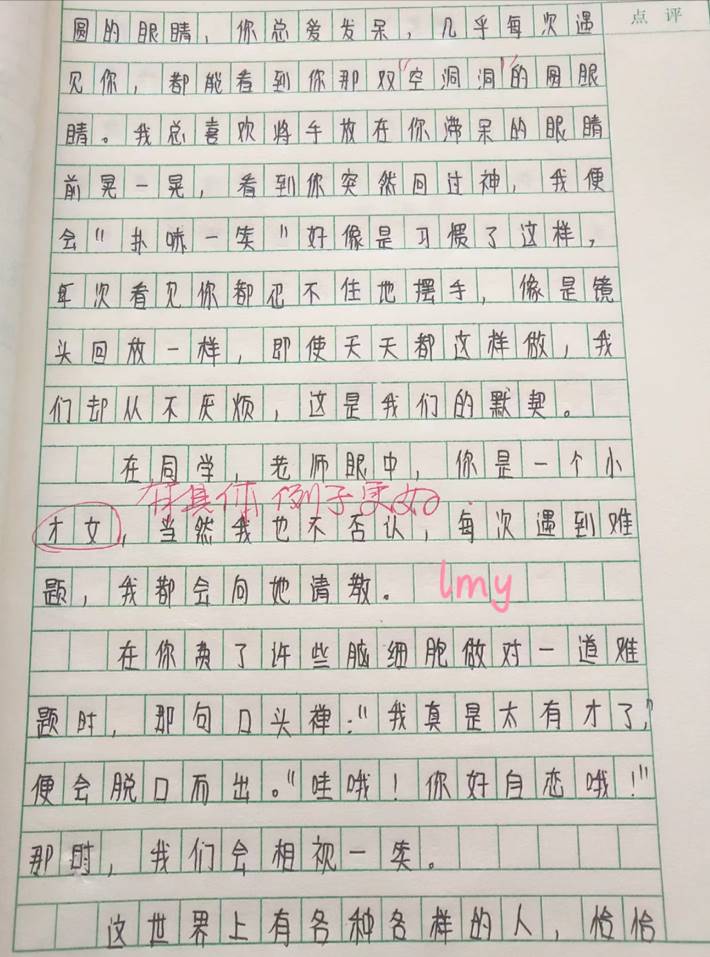 点评
圆的眼睛，你总爱发呆，几乎每次遇
见你，都能看到你那双“空洞洞”的圆眼
睛。我总喜欢将手放在你滞呆的眼睛
前晃一晃，看到你突然回过神，我便
会“扑哧一笑”好像是习惯了这样，
每次看见你都忍不住地摆手，像是镜
头回放一样，即使天天都这样做，我
们却从不厌烦，这是我们的默契。
在同学，老师眼中，你是一个小
有具体例子更好．
才女，当然我也不否认，每次遇到难
题，我都会向她请教。
lmy
在你费了许些脑细胞做对一道难
题时，那句口头禅：“我真是太有才了，”
便会脱口而出。“哇哦！你好自恋哦！”
那时，我们会相视一笑。
这世界上有各种各样的人，恰恰